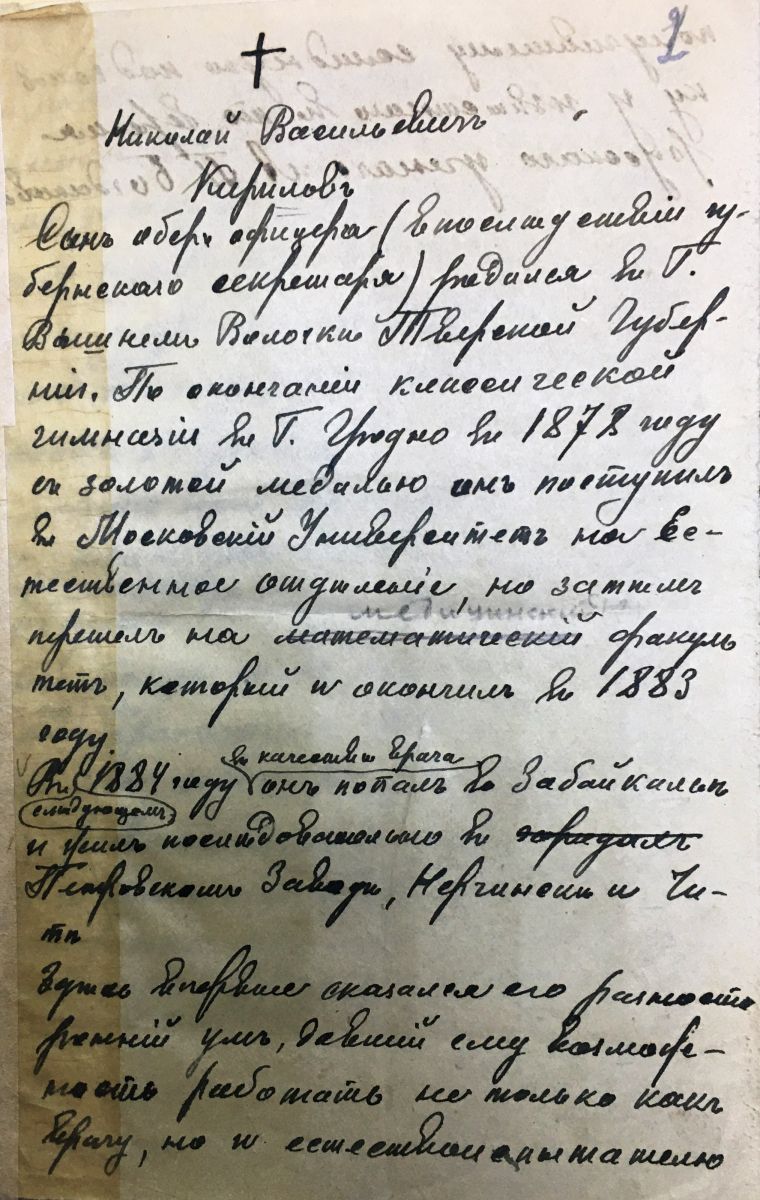 2
Николай Васильевичъ
Кириловъ
Сынъ обер. офицера (впослѣдствіи гу-
бернскаго секретаря) родился въ Г.
Вышнемъ Волочкѣ Тверской Губер-
ніи. По окончаніи классической
гимназіи въ Г. Гродно въ 1878 году
съ золотой медалью онъ поступилъ
въ Московскій Университетъ на Ес-
тественное отдѣленіе, но затѣмъ
медицинскій
перешелъ на математическій факуль
тетъ, который и окончилъ въ 1883
году.
въ качествѣ врача
Въ 1884 году онъ попалъ въ Забайкалье
слѣдующемъ
и жилъ послѣдовательно въ
Петровскомъ Заводѣ, Нерчинскѣ и Чи-
тѣ
Здѣсь впервые сказался его разносто
ронній умъ, давшій ему возмож-
ность работать не только какъ
врачу, но и естествоиспытателю